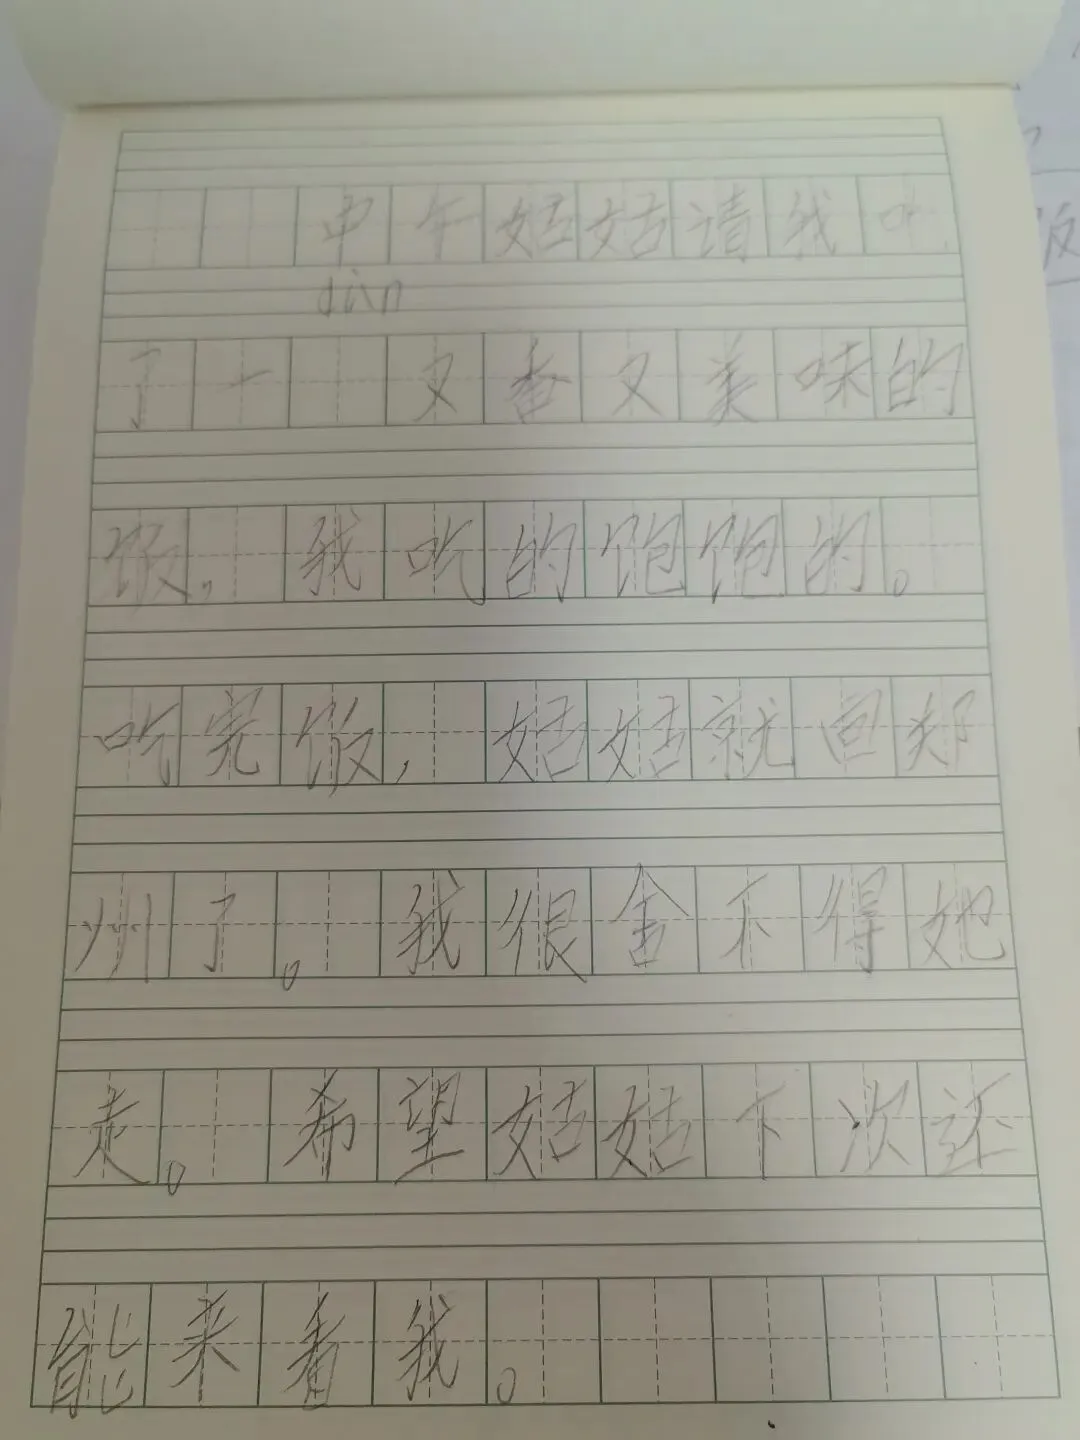 中午姑姑请我吃
diàn
了一 又香又美味的
饭，我吃的饱饱的。
吃完饭，姑姑就回郑
州了。我很舍不得她
走。希望姑姑下次还
能来看我。